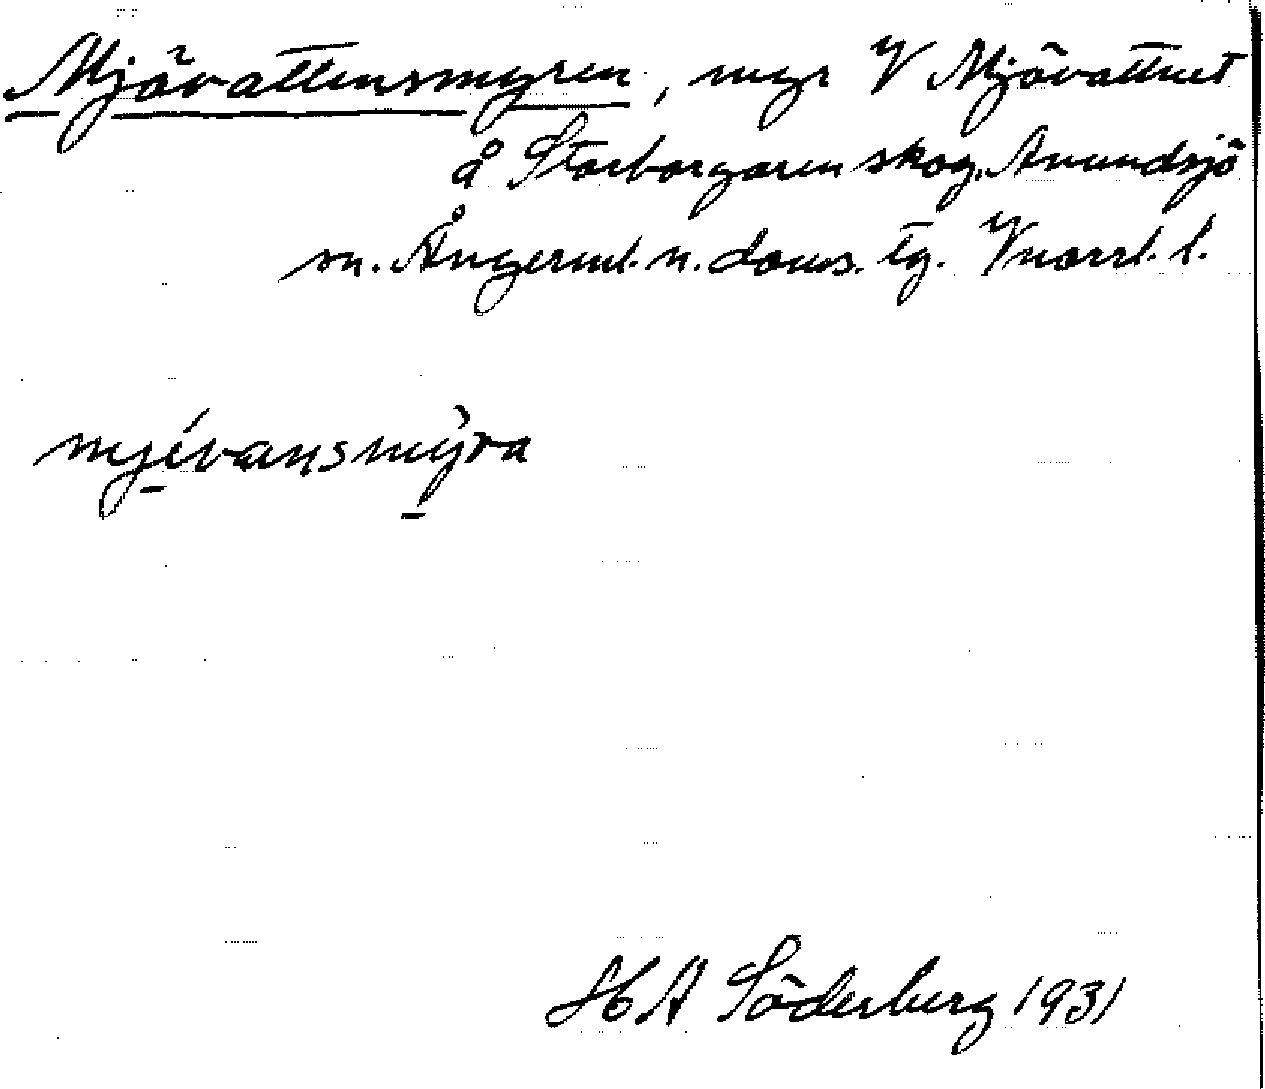 Mjövattensmyren, myr V Mjövattnet
å Storborgaren skog, Anundsjö
sn. Ångerml. n. doms. tg. Vnorrl. l.
mjèvaṇsmỳra
H A Söderberg 1931